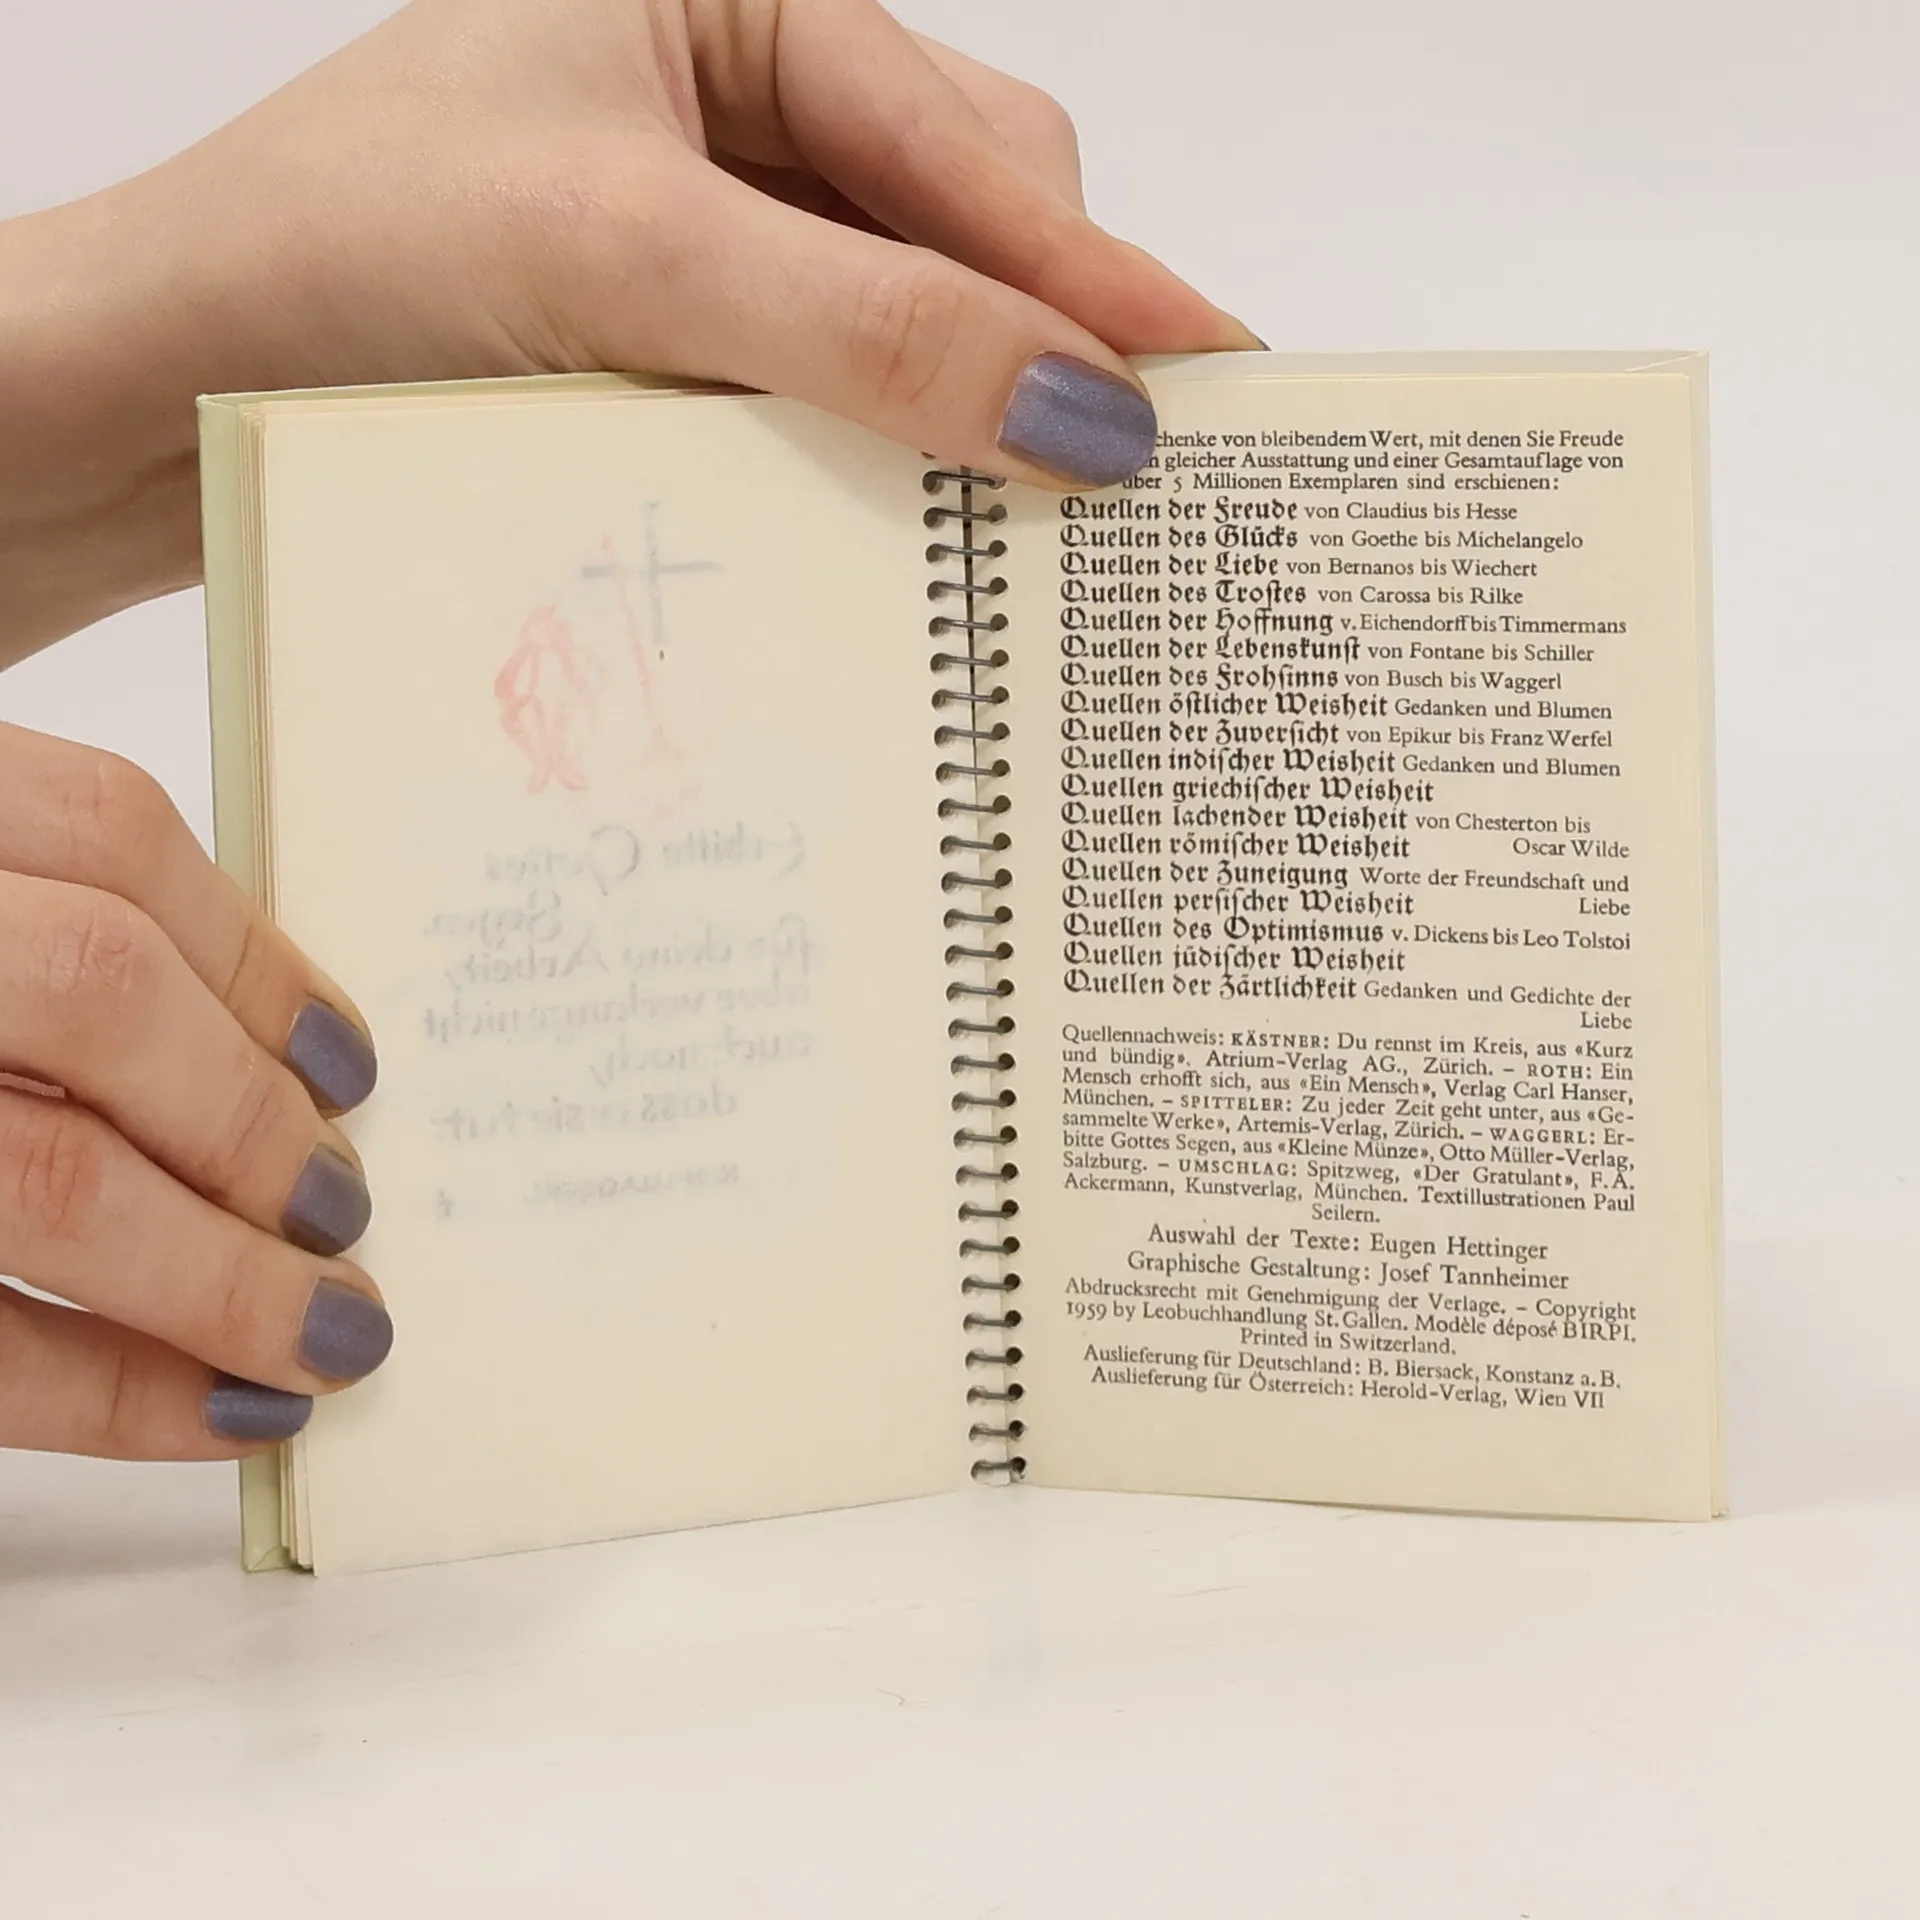 Erbitte Gottes
Segen
für deine Arbeit,
aber verlange nicht
auch noch,
dass er sie tut.
K. H. WAGGERL
von bleibendem Wert, mit denen Sie Freude
gleicher Ausstattung und einer Gesamtauflage von
über 5 Millionen Exemplaren sind erschienen:
Quellen der Freude von Claudius bis Hesse
Quellen des Glücks von Goethe bis Michelangelo
Quellen der Liebe von Bernanos bis Wiechert
Quellen des Trostes von Carossa bis Rilke
Quellen der Hoffnung v. Eichendorff bis Timmermans
Quellen der Lebenskunst von Fontane bis Schiller
Quellen des Frohsinns von Busch bis Waggerl
Quellen östlicher Weisheit Gedanken und Blumen
Quellen der Zuversicht von Epikur bis Franz Werfel
Quellen indischer Weisheit Gedanken und Blumen
Quellen griechischer Weisheit
Quellen lachender Weisheit von Chesterton bis
Quellen römischer Weisheit Oscar Wilde
Quellen der Zuneigung Worte der Freundschaft und
Quellen persischer Weisheit Liebe
Quellen des Optimismus v. Dickens bis Leo Tolstoi
Quellen jüdischer Weisheit
Quellen der Zärtlichkeit Gedanken und Gedichte der
Liebe
Quellennachweis: KÄSTNER: Du rennst im Kreis, aus «Kurz
und bündig», Atrium-Verlag AG., Zürich. – ROTH: Ein
Mensch erhofft sich, aus «Ein Mensch», Verlag Carl Hanser,
München. – SPITTELER: Zu jeder Zeit geht unter, aus «Ge-
sammelte Werke», Artemis-Verlag, Zürich. – WAGGERL: Er-
bitte Gottes Segen, aus «Kleine Münze», Otto Müller-Verlag,
Salzburg. – UMSCHLAG: Spitzweg, «Der Gratulant», F. A.
Ackermann, Kunstverlag, München. Textillustrationen Paul
Seilern.
Auswahl der Texte: Eugen Hettinger
Graphische Gestaltung: Josef Tannheimer
Abdrucksrecht mit Genehmigung der Verlage. – Copyright
1959 by Leobuchhandlung St. Gallen. Modèle déposé BIRPI.
Printed in Switzerland.
Auslieferung für Deutschland: B. Biersack, Konstanz a. B.
Auslieferung für Österreich: Herold-Verlag, Wien VII